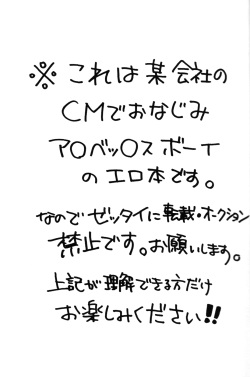 ※これは某会社の
CMでおなじみ
ア〇ベッ〇スボーイ
のエロ本です。
なのでゼッタイに転載・オークション
禁止です。お願いします。
上記が理解できる方だけ
お楽しみください!!